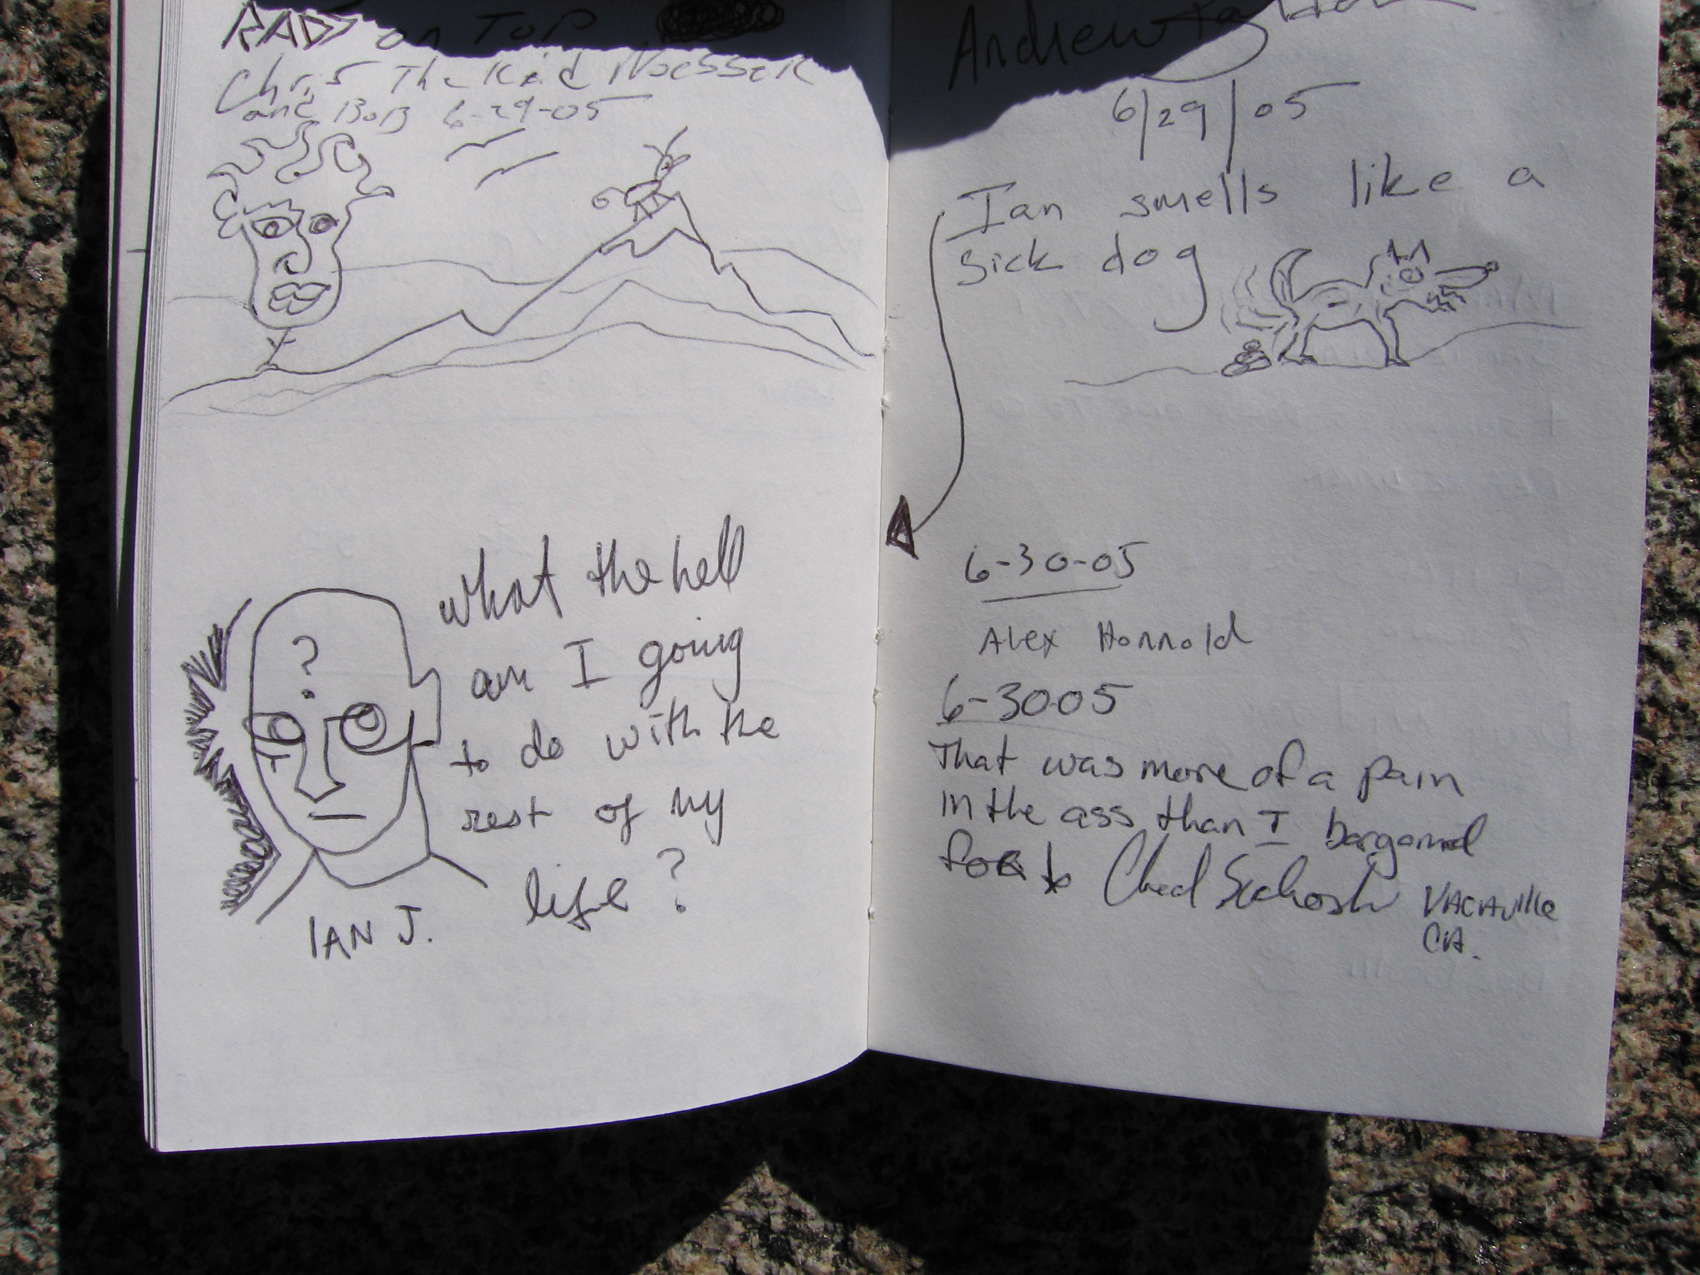 RAD on TOP
Chris The Kid
and BoB 6-29-05
what the hell
am I going
to do with the
rest of my
life?
IAN J.
Andrew
6/29/05
Ian smells like a
sick dog
6-30-05
Alex Honnold
6-3005
That was more of a pain
in the ass than I bargained
for Chad VACAville
CA.